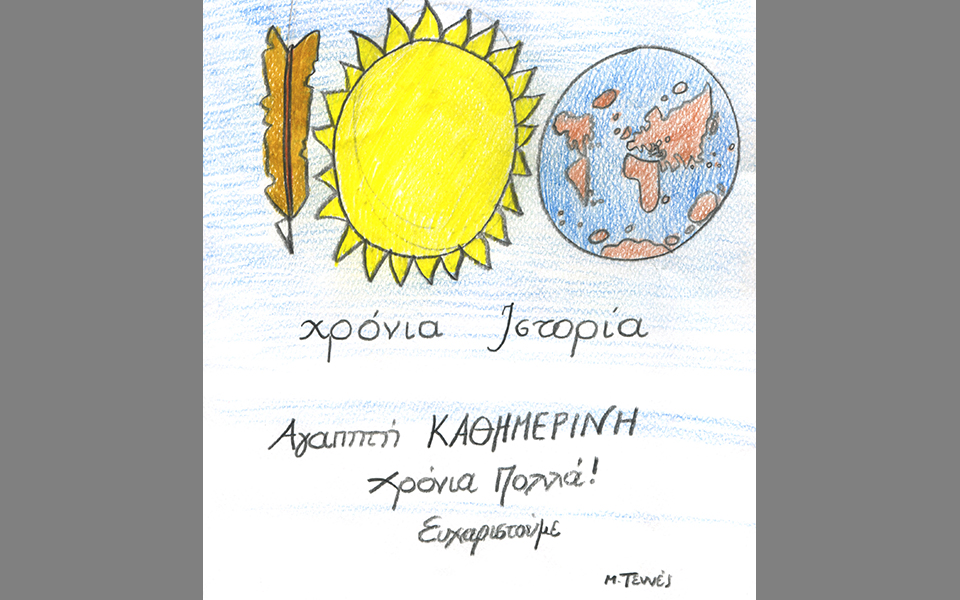 χρόνια Ιστορία
Αγαπητή ΚΑΘΗΜΕΡΙΝΗ
Χρόνια Πολλά!
Ευχαριστούμε
Μ. Τεννές